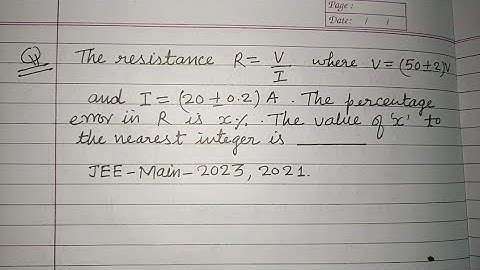 Page:
Date: / /
Q The resistance R = V/I where V = (50±2)V
and I = (20±0.2) A. The percentage
error in R is x%. The value of 'x' to
the nearest integer is ________
JEE-Main-2023, 2021.